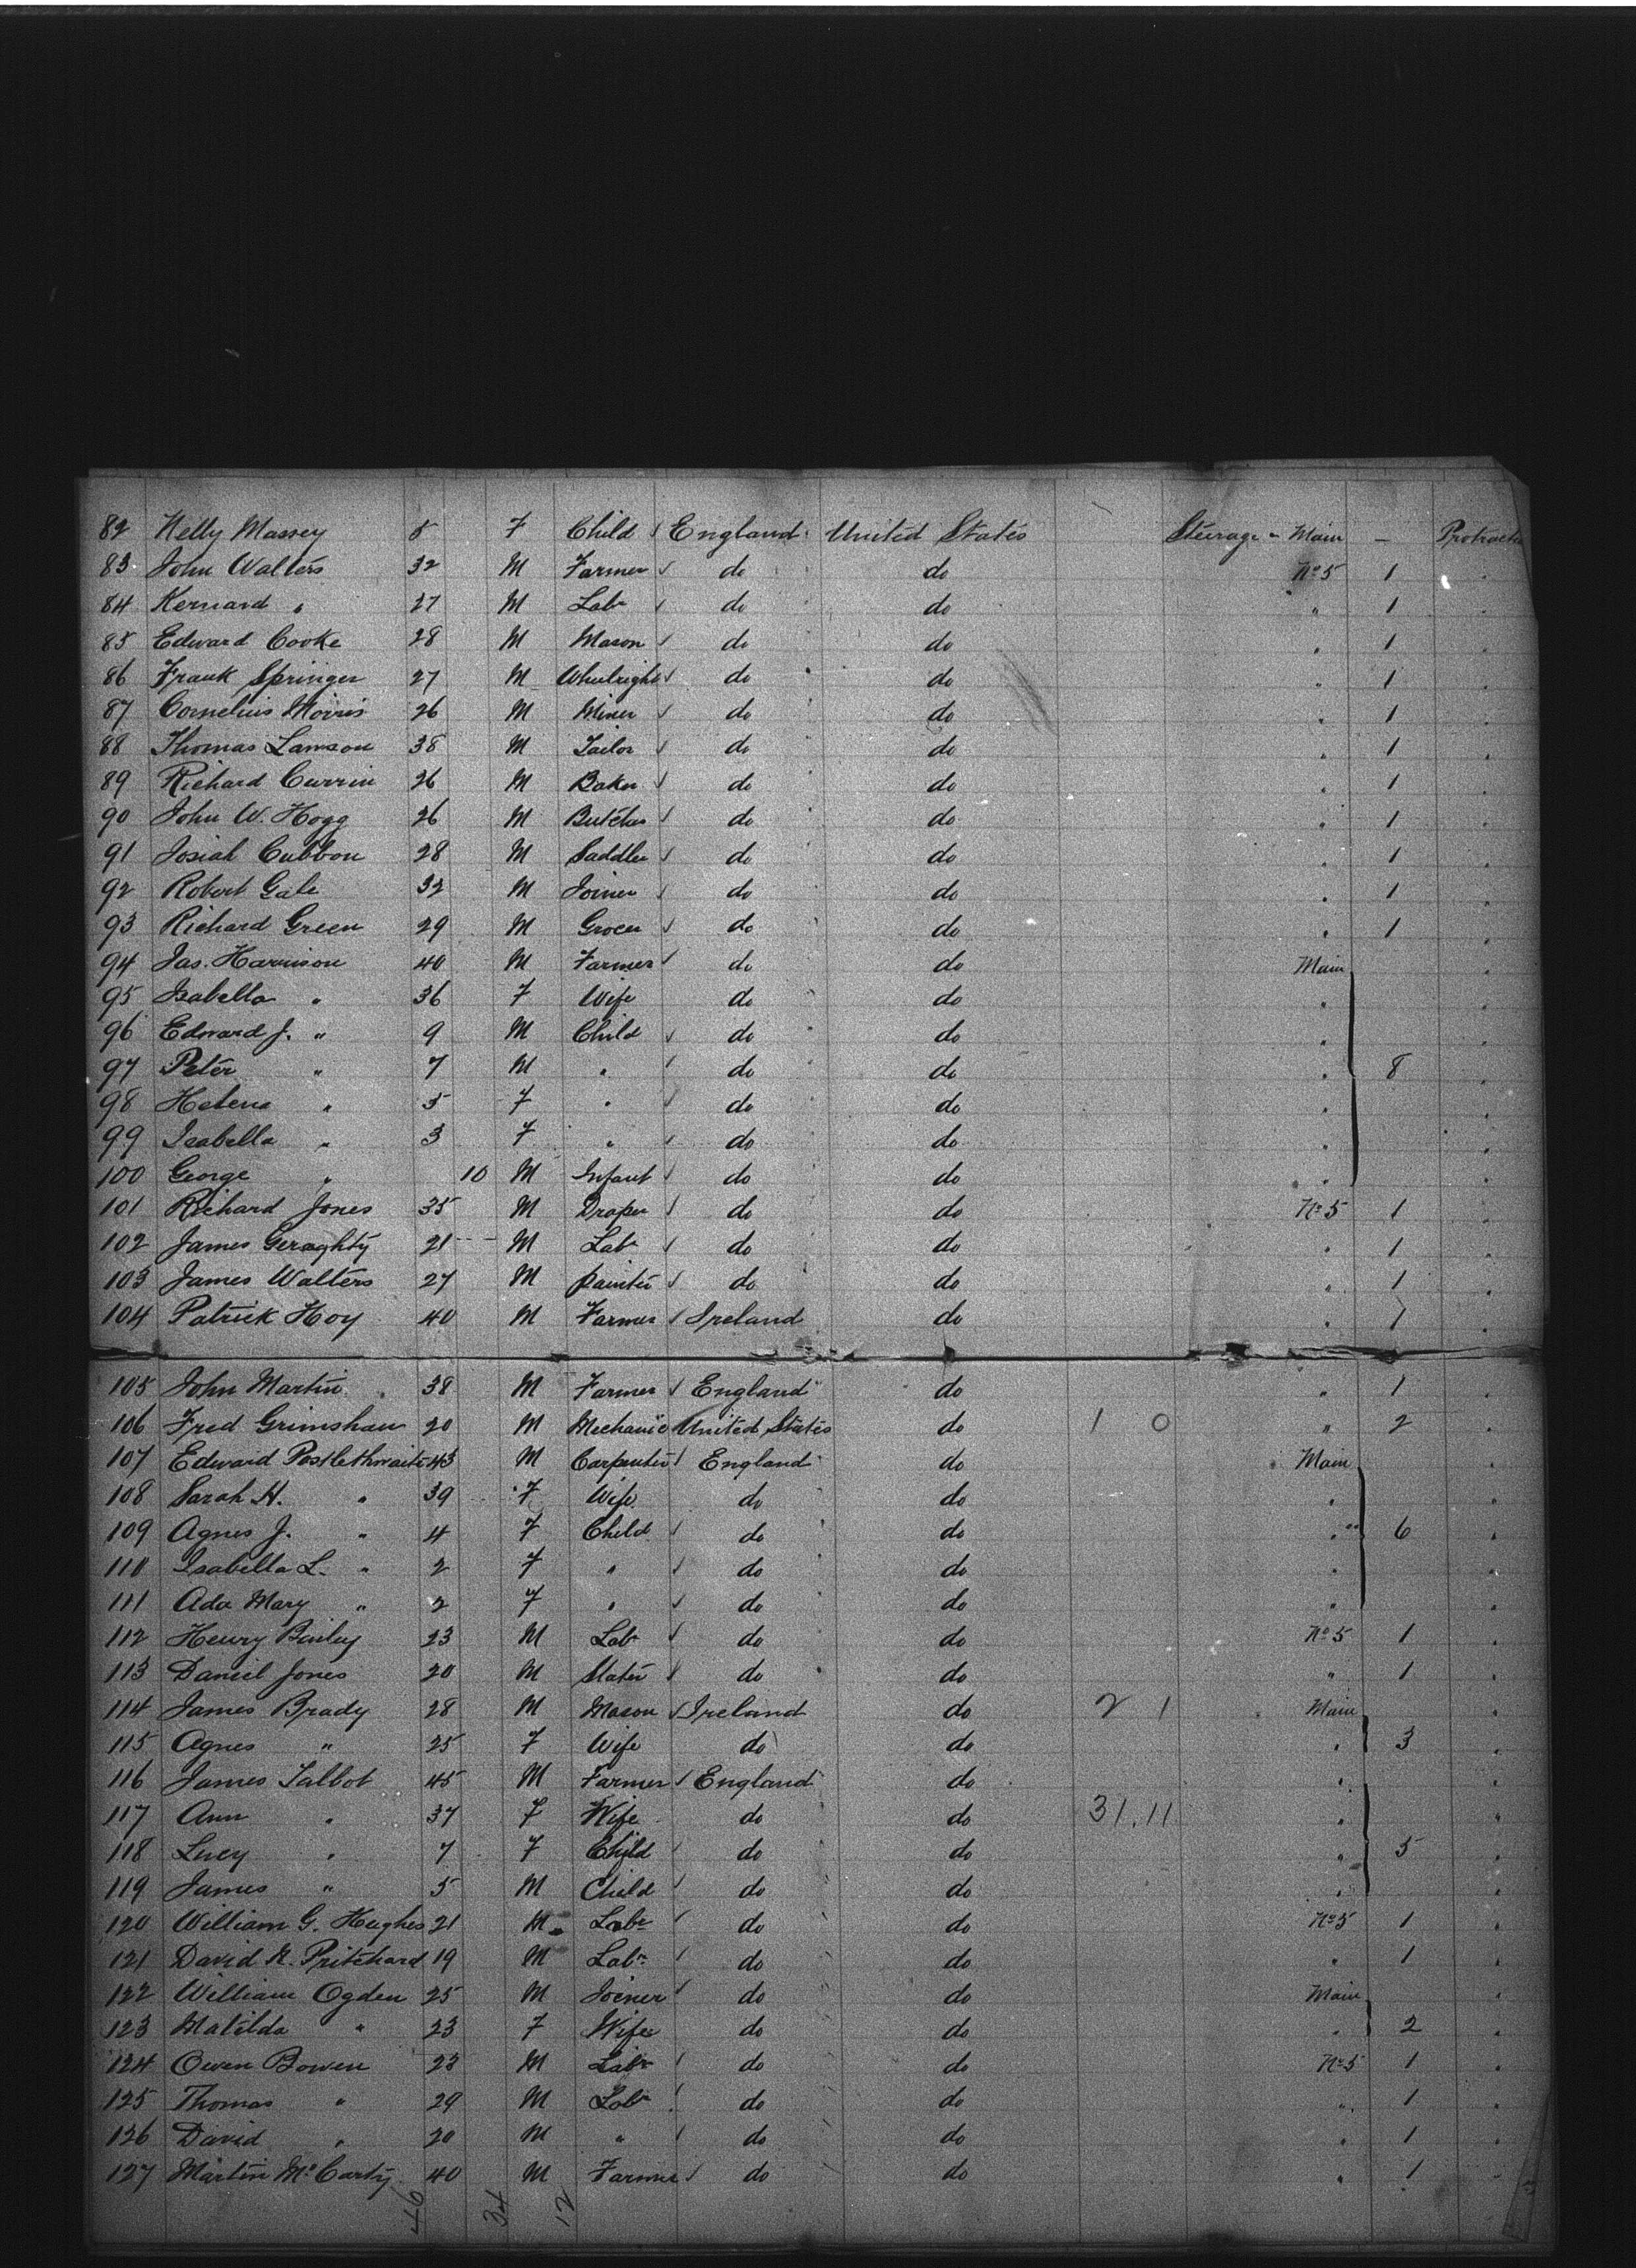 82 Nelly Massey 5 F Child England United States Steerage - Main - Protracted
83 John Walters 32 M Farmer do do No 5 1 "
84 Kernard " 27 M Labr do do " 1 "
85 Edward Cooke 28 M Mason do do " 1 "
86 Frank Springer 27 M Wheelright do do " 1 "
87 Cornelius Morris 26 M Miner do do " 1 "
88 Thomas Lamson 38 M Tailor do do " 1 "
89 Richard Currin 26 M Baker do do " 1 "
90 John W. Hogg 26 M Butcher do do " 1 "
91 Josiah Cubbon 28 M Saddler do do " 1 "
92 Robert Gale 32 M Joiner do do " 1 "
93 Richard Green 29 M Grocer do do " 1 "
94 Jas. Harrison 40 M Farmer do do Main "
95 Isabella " 36 F Wife do do " "
96 Edward J. " 9 M Child do do " "
97 Peter " 7 M " do do " 8 "
98 Helena " 5 F " do do " "
99 Isabella " 3 F " do do " "
100 George " 10 M Infant do do " "
101 Richard Jones 35 M Draper do do No 5 1 "
102 James Geraghty 21 M Labr do do " 1 "
103 James Walters 27 M painter do do " 1 "
104 Patrick Hoy 40 M Farmer Ireland do " 1 "
105 John Martin 38 M Farmer England do " 1 "
106 Fred Grimshaw 20 M Mechanic United States do 1 0 " 2 "
107 Edward Postlethwaite 43 M Carpenter England do Main "
108 Sarah H. " 39 F Wife do do " "
109 Agnes J. " 4 F Child do do " 6 "
110 Isabella L. " 2 F " do do " "
111 Ada Mary " 2 F " do do " "
112 Henry Binley 23 M Labr do do No 5 1 "
113 Daniel Jones 20 M Slater do do " 1 "
114 James Brady 28 M Mason Ireland do 2 1 Main "
115 Agnes " 25 F Wife do do " 3 "
116 James Talbot 45 M Farmer England do " "
117 Ann " 37 F Wife do do 31.11 " "
118 Lucy " 7 F Child do do " 5 "
119 James " 5 M Child do do " "
120 William G. Hughes 21 M Labr do do No 5 1 "
121 David R. Pritchard 19 M Labr do do " 1 "
122 William Ogden 25 M Joiner do do Main "
123 Matilda " 23 F Wife do do " 2 "
124 Owen Bowen 23 M Labr do do No 5 1 "
125 Thomas " 29 M Labr do do " 1 "
126 David " 20 M " do do " 1 "
127 Martin McCarty 40 M Farmer do do " 1 "
46 34 12